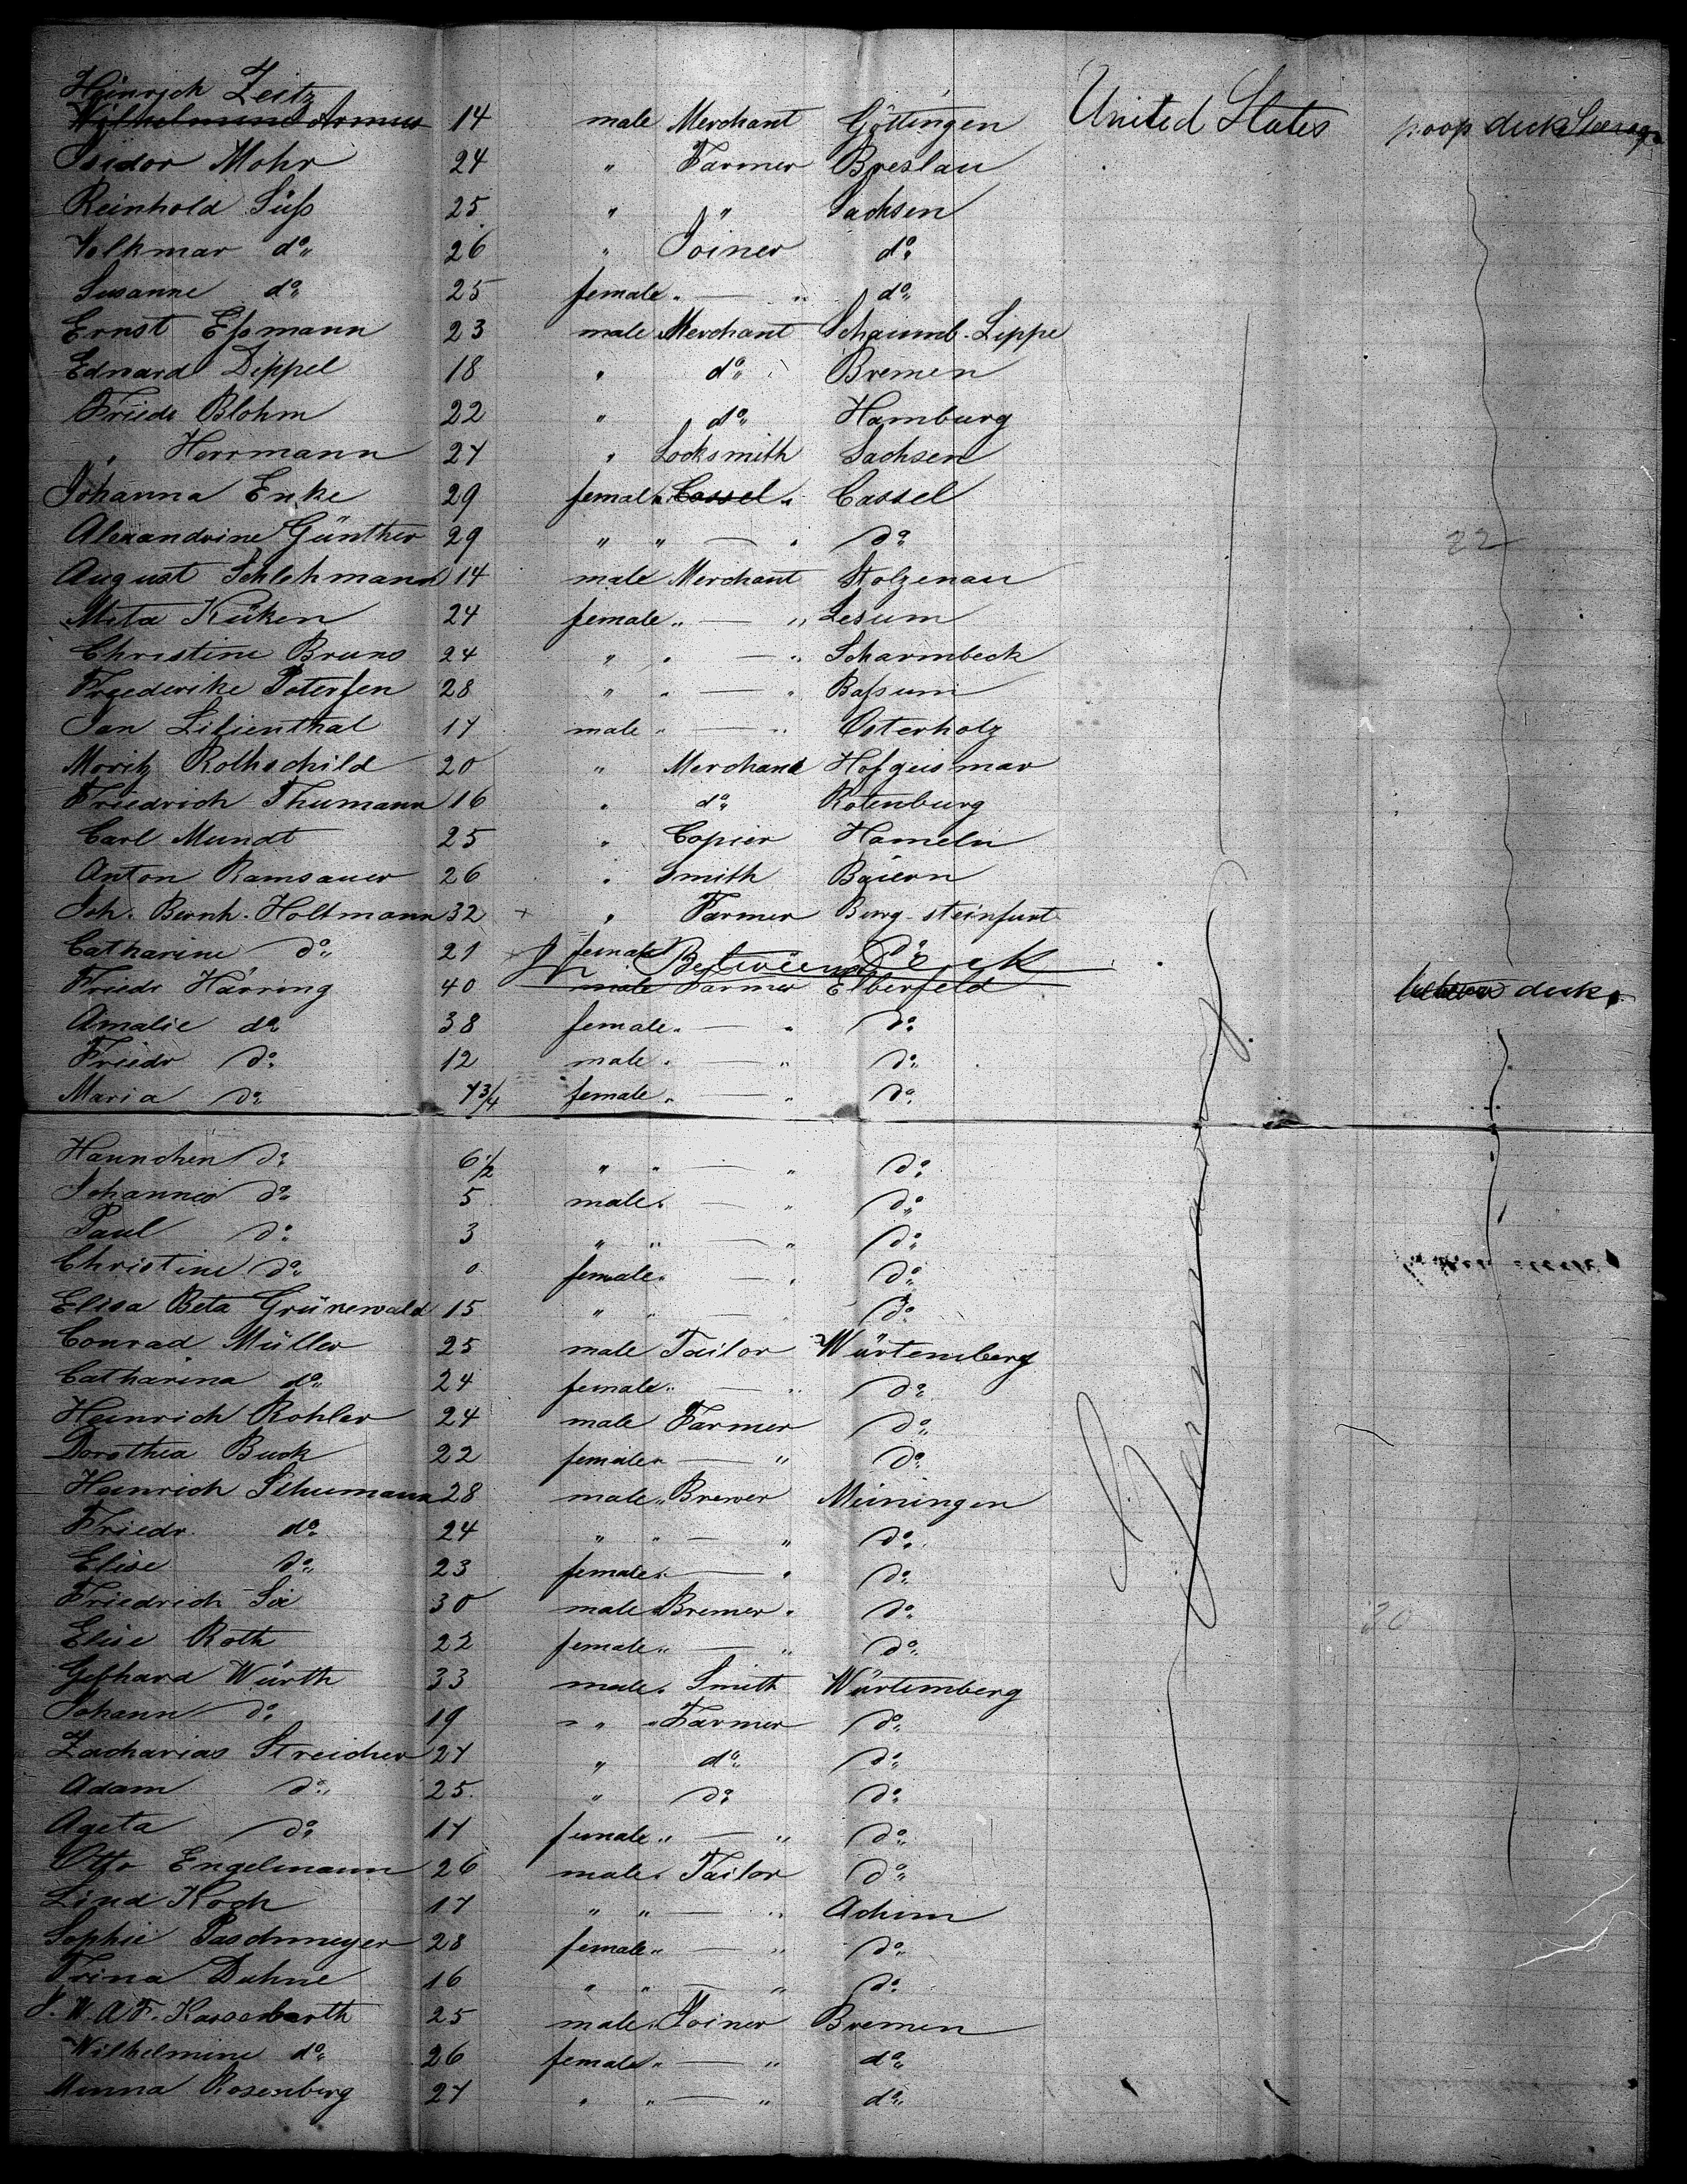 Heinrich Zeitz
Wilhelmine Armus 14 male Merchant Göttingen United States poop deck Steerage
Isidor Mohr 24 " Farmer Breslau
Reinhold Süß 25 " " Sachsen
Volkmar do 26 " Joiner do
Susanne do 25 female " — " do
Ernst Eßmann 23 male Merchant Schaumb. Lippe
Eduard Dippel 18 " do Bremen
Friedr Blohm 22 " do Hamburg
" Herrmann 27 " Locksmith Sachsen
Johanna Enke 29 female Cassel " Cassel
Alexandrine Günther 29 " " — " do 22
August Schlehmann 14 male Merchant Stolzenau
Meta Küken 24 female " — " Lesum
Christine Bruns 24 " " — " Scharmbeck
Friederike Petersen 28 " " — " Baßum
Jan Lilienthal 17 male " — " Osterholz
Moritz Rothschild 20 " Merchand Hofgeismar
Friedrich Thumann 16 " do Rotenburg
Carl Mundt 25 " Copier Hameln
Anton Ramsauer 26 " Smith Baiern
Joh. Bernh. Holtmann 32 + " Farmer Burg-steinfurt
Catharine do 21 female do
Between Deck
Friedr Härring 40 male Farmer Elberfeld between deck
Amalie do 38 female " — " do
Friedr do 12 male " — " do
Maria do 7 3/4 female " — " do
Hannchen do 6 1/2 " " — " do
Johannes do 5 male " — " do
Paul do 3 " " — " do
Christine do 0 female " — " do
Elisa Beta Grünewald 15 " " — " do
Conrad Müller 25 male Tailor Würtemberg
Catharina do 24 female " — " do
Heinrich Kohler 24 male Farmer do
Dorothea Buck 22 female " — " do
Germany
Heinrich Schumann 28 male " Brewer Meiningen
Friedr do 24 " " — " do
Elise do 23 female " — " do
Friedrich Six 30 male Bremer " do 30
Elise Roth 22 female " — " do
Gebhard Würth 33 male " Smith Würtemberg
Johann do 19 " " " Farmer do
Zacharias Streicher 27 " do do
Adam do 25 " do do
Ageta do 17 female " — " do
Otto Engelmann 26 male " Tailor do
Lind Koch 17 " " — " Achim
Sophie Paschmeyer 28 female " — " do
Trina Duhne 16 " " — " do
J. W. A F. Kassebarth 25 male " Joiner Bremen
Wilhelmine do 26 female " — " do
Minna Rosenberg 27 " " — " do